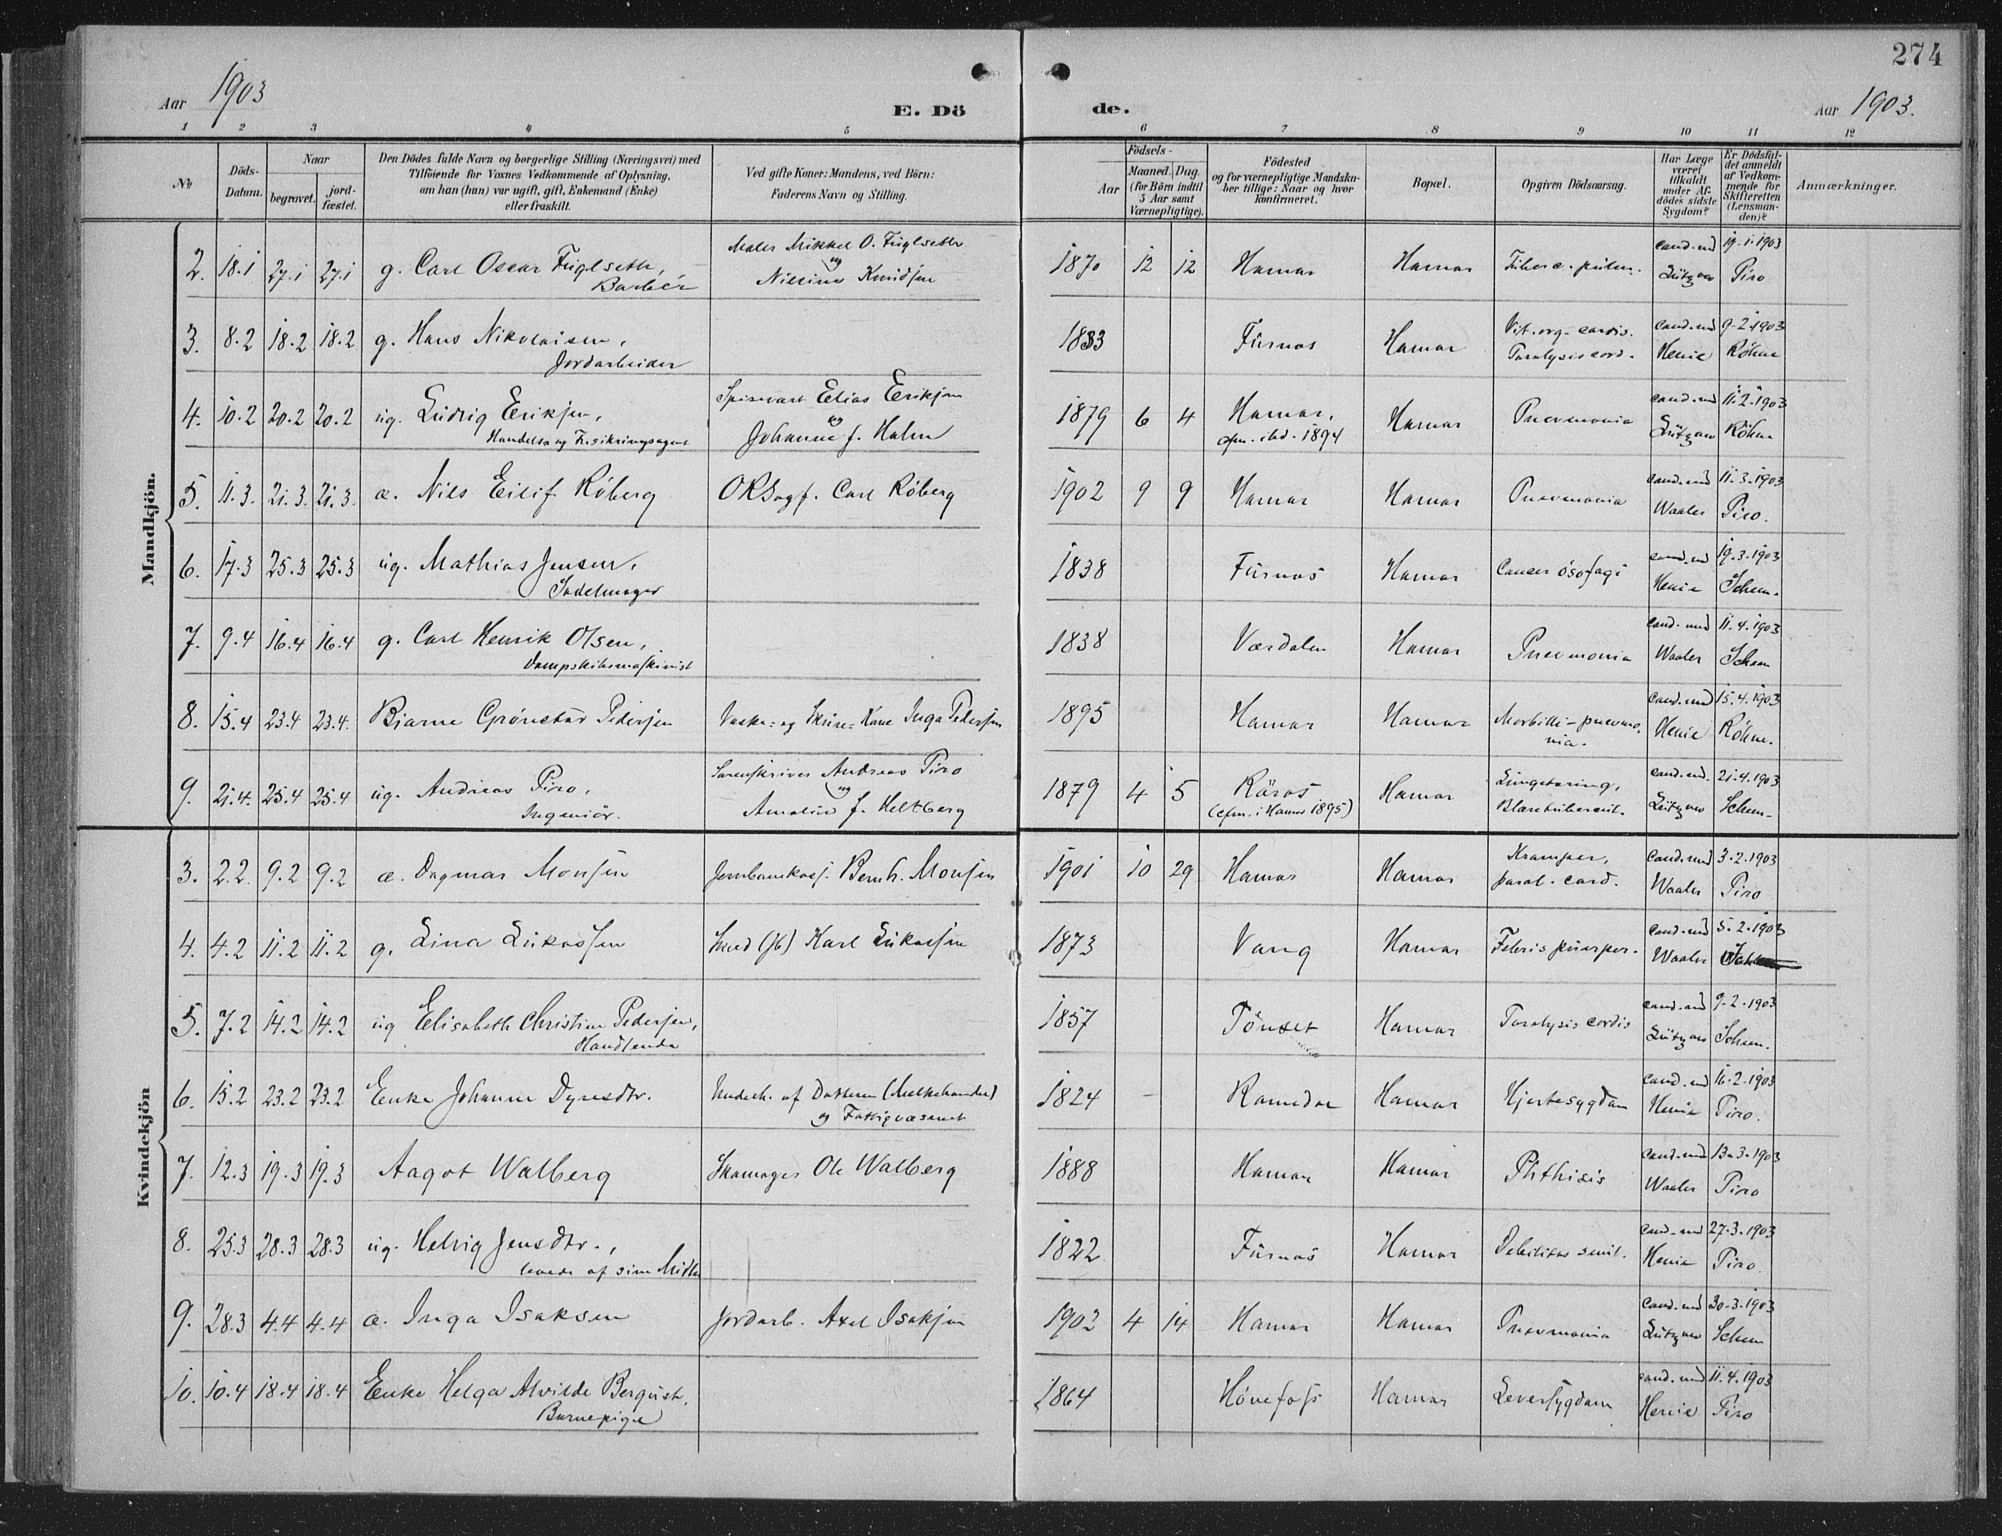 274
Aar 1903
E. Dö
de.
Aar 1903.
1 2 3 4 5 6 7 8 9 10 11 12
No
Döds-Datum.
Naar
begravet.
jord-fæstet.
Den Dödes fulde Navn og borgerlige Stilling (Næringsvei) med
Tilföiende for Voxnes Vedkommende af Oplysning,
om han (hun) var ugift, gift, Enkemand (Enke)
eller fraskilt.
Ved gifte Koner: Mandens, ved Börn:
Faderens Navn og Stilling.
Födsels-
Aar
Maaned. Dag.
(for Börn indtil
5 Aar samt
Værnepligtige).
Födested
og for værnepligtige Mandska-
ber tillige: Naar og hvor
konfirmeret.
Bopæl.
Opgiven Dödsaarsag.
Har Læge
været
tilkaldt
under Af-
dödes sidste
Sygdom?
Er Dödsfal-
det anmeldt
af Vedkom-
mende for
Skifteretten
(Lensman-
den)?
Anmærkninger.
Mandkjön.
2. 18.1 27.1 27.1 g. Carl Oscar Fuglseth, Barber
Maler Mikkel O. Fuglseth og Nilsine Knudsen
1870 12 12 Hamar Hamar Tuberc. pulm. cand. med Lützow 19.1.1903 Piro
3. 8.2 18.2 18.2 g. Hans Nikolaisen, Jordarbeider
1833 Furnæs Hamar Vit. org. cordis. Paralysis cord. cand. med Henie 9.2.1903 Röhme
4. 10.2 20.2 20.2 ug. Ludvig Eriksen, Handels og Fors.ikringsagent
Spisevært Elias Eriksen og Johanne f. Holm
1879 6 4 Hamar, cfm. ibd. 1894 Hamar Pneumonia cand. med Lützow 11.2.1903 Röhme
5. 11.3. 21.3. 21.3. æ. Nils Eilif Röberg
ORSagf. Carl Röberg
1902 9 9 Hamar Hamar Pneumonia cand. med Waaler 11.3.1903 Piro.
6. 17.3 25.3 25.3 ug. Mathias Jensen, Sadelmager
1838 Furnæs Hamar Cancer ösofagi cand. med Henie 19.3.1903 Scheen.
7. 9.4 16.4 16.4 g. Carl Henrik Olsen, Dampskibsmaskinist
1838 Værdalen Hamar Pneumonia cand. med Waaler 11.4.1903 Scheen
8. 15.4 23.4 23.4. Bjarne Grönstad Pedersen
Vaske- og Skure-Kone Inga Pedersen
1895 Hamar Hamar Morbilli-pneumonia. cand. med Henie 15.4.1903 Röhme.
9. 21.4. 25.4 25.4 ug. Andreas Piro, Ingeniör.
Sorenskriver Andreas Piro og Amalie f. Heltberg
1879 4 5 Röros (cfm. i Hamar 1895) Hamar Lungetæring, Blæretubercul. cand. med. Lützow 21.4.1903 Scheen-
Kvindekjön
3. 2.2. 9.2 9.2 æ. Dagmar Monsen
Jernbanekasj. Bernh. Monsen
1901 10 29 Hamar Hamar Kramper, paral. card. cand. med Waaler 3.2.1903 Piro
4. 4.2 11.2 11.2 g. Lina Lukassen
Smed (Jb) Karl Lukassen
1873 Vang Hamar Febris puerper. cand. med Waaler 5.2.1903
5. 7.2 14.2 14.2 ug Elisabeth Christine Pedersen, Handlende
1857 Tönset Hamar Paralysis cordis cand. med Lützow 9.2.1903 Scheen.
6. 15.2 23.2 23.2 Enke Johanne Dyresdtr.
Undech. af Datteren (Melkehandler) og Fattigvæsenet
1824 - Romedal Hamar Hjertesygdom cand. med Henie 16.2.1903 Piro.
7. 12.3 19.3 19.3 Aagot Walberg
Skomager Ole Walberg
1888 Hamar Hamar Phthisis cand. med Waaler 13.3.1903 Piro
8. 25.3 28.3 28.3 ug. Helvig Jensdtr., levede af sine Midler
1822 Furnæs Hamar Debilitas senil. cand. med Henie 27.3.1903 Piro.
9. 28.3 4.4 4.4 æ. Inga Isaksen
Jordarb. Axel Isaksen
1902 4 14 Hamar Hamar Pneumonia cand. med Lützow 30.3.1903 Scheen
10. 10.4 18.4 18.4 Enke Helga Alvilde Berquist, Barnepige
1864 Hönefoss Hamar Leversygdom cand. med Henie 11.4.1903 Piro